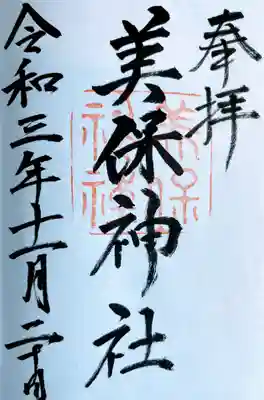 奉拝
美保神社
令和三年十一月二十日